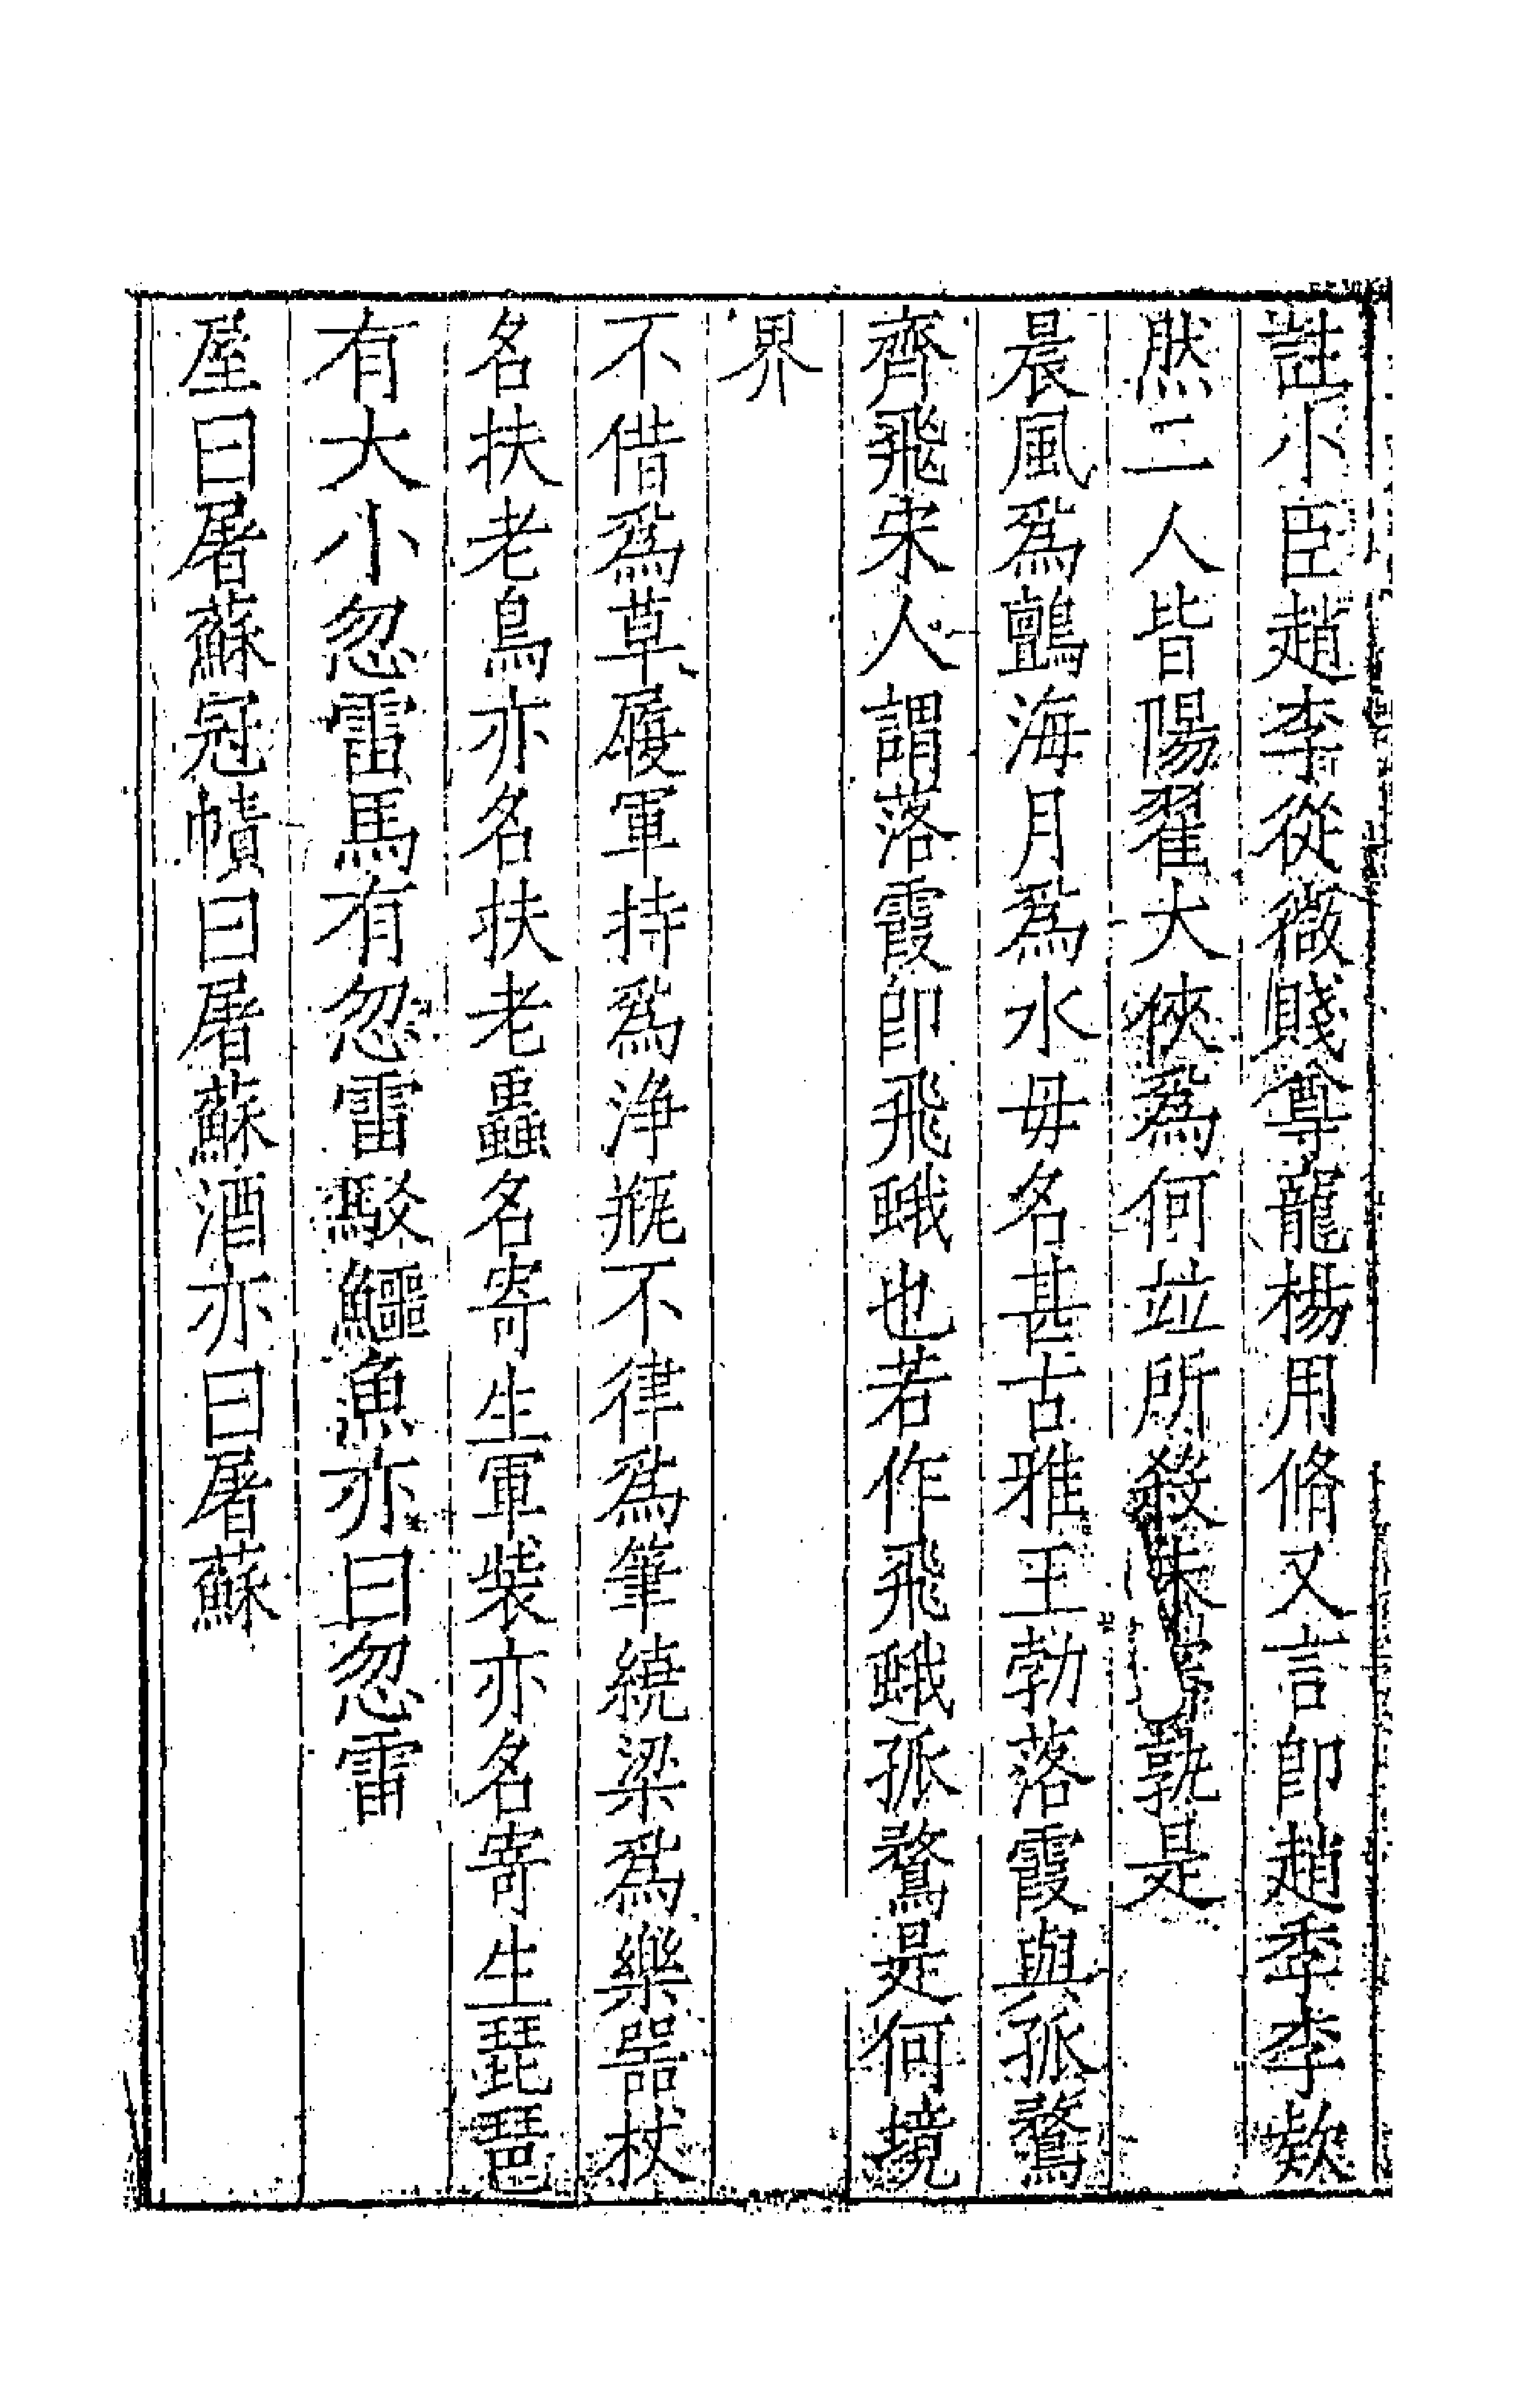 註小臣趙李從微賤尊龍楊用脩又言卽趙季李欵
然二人皆陽翟大俠爲何竝所殺未孰是
晨風爲鸇海月爲水毋名甚古雅王勃落霞與孤鶩
齊飛宋人謂落霞卽飛蛾也若作飛蛾孤鶩是何境
界
不借爲草履軍持爲淨瓶不律爲筆繞梁爲樂器杖
名扶老鳥亦名扶老蟲名寄生軍裝亦名寄生琵琶
有大小忽雷馬有忽雷駮鱷魚亦曰忽雷
屋曰屠蘇冠幘曰屠蘇酒亦曰屠蘇